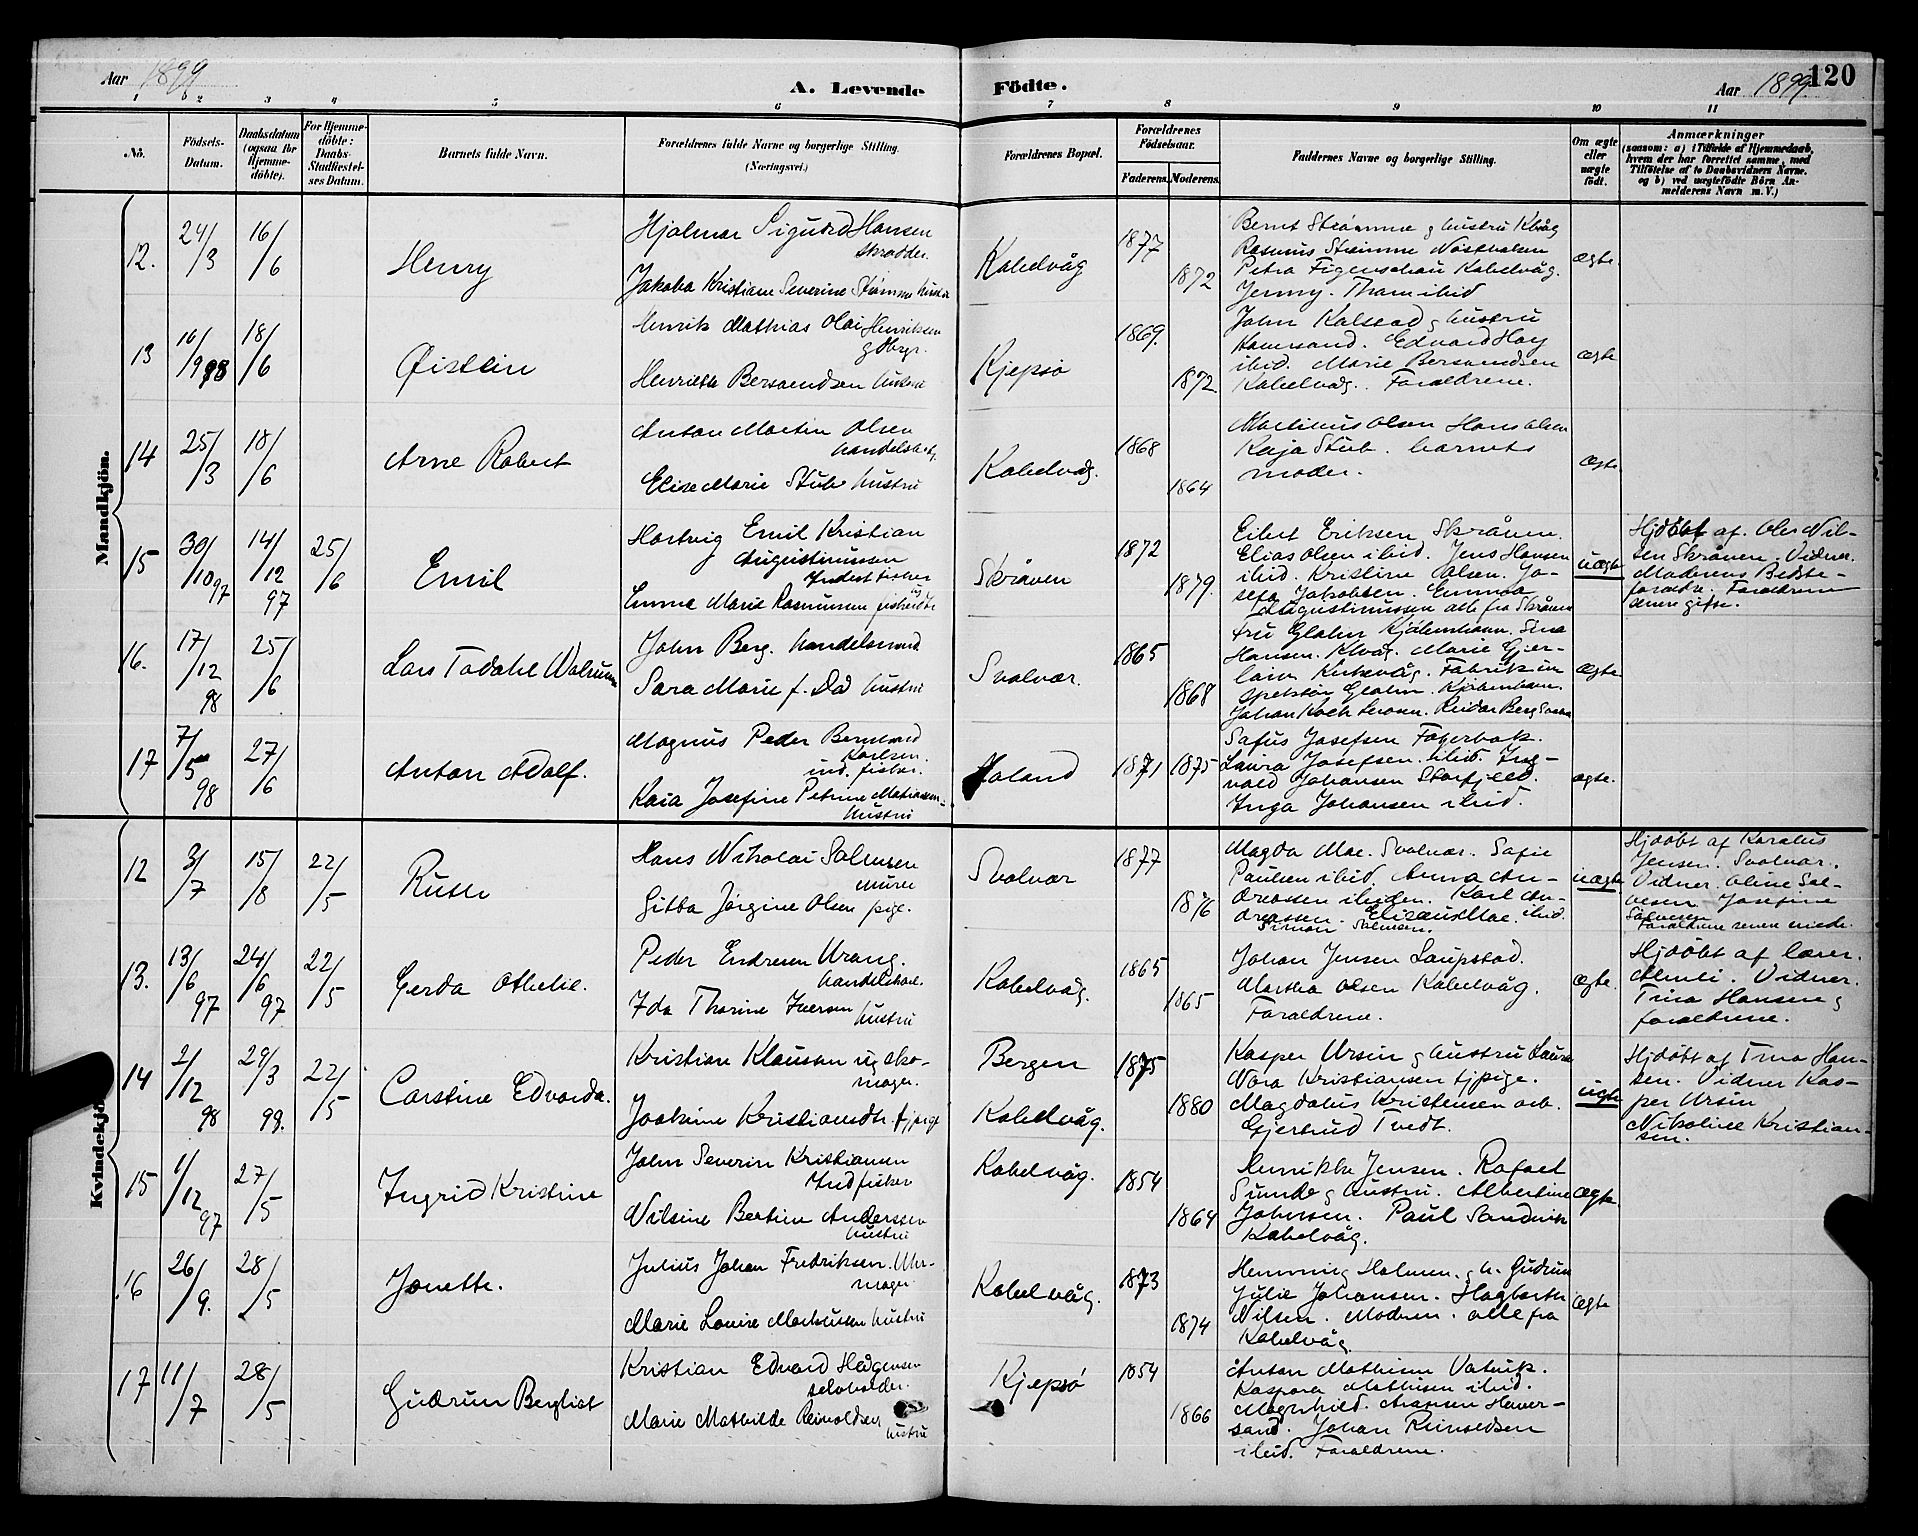 Aar 1899
A. Levende Födte.
Aar 1899.
120
1 2 3 4 5 6 7 8 9 10 11
No.
Födsels-
Datum.
Daabsdatum
(ogsaa for
Hjemme-
döbte).
For Hjemme-
döbte:
Daabs-
Stadfæstel-
ses Datum.
Barnets fulde Navn.
Forældrenes fulde Navne og borgerlige Stilling.
(Næringsvei.)
Forældrenes Bopæl.
Forældrenes
Födselsaar.
Faderens. Moderens.
Faddernes Navne og borgerlige Stilling.
Om ægte
eller
uægte
födt.
Anmærkninger
(saasom: a) i Tilfælde af Hjemmedaab,
hvem der har forrettet samme, med
Tilföielse af to Daabsvidners Navne.
og b) ved uægtefödte Börn An-
melderens Navn m.V.)
Mandkjön.
12. 24/3 16/6
Henry
Hjalmar Sigurd Hansen
skrædder
Jakoba Kristiane Severine Strømme hustru
Kabelvåg
1877
1872
Bernt Strømme g hustru Klvåg
Rasmus Strømme Nøstholmen
Petra Figenschau Kabelvåg.
Jenny Tham ibid
ægte
13 10/9 98 18/6
Øistein
Henrik Mathias Olai Henriksen
gdbrgr.
Henriette Berntsen hustru
Kjepsø
1869.
1872
John Kalstad g hustru
Edvard Hoy
ibid. Marie
Kabelvåg. Forældrene.
ægte
14 25/3 18/6
Arne Robert
Anton Martin Olsen
handelsbest.
Elise Marie Stub hustru
Kabelvåg.
1868
1864
Martinus Olsen Hans Olsen
Kaja Stub. barnets
moder.
ægte
15 30/10 97 14/12 97 25/6
Emil
Hartvig Emil Kristian
Augustinussen
Indst fisker
Emma Marie Rasmussen fiskerdtr
Skråven
1872
1879.
Eibert Eriksen Skråven.
Elias Olsen ibid. Jens Hansen
ibid. Kristine Olsen. Jo-
sefa Jakobsen. Emma
Augustinussen alle fra Skråven
uægte
Hjdöbt af Ole Nil-
sen Skråven. Vidner.
Moderens Bedste-
forældre. Forældrene
senere gifte.
16. 17/12 98 25/6
John Berg. handelsmand
Sara Marie f. Dal hustru
Svolvær.
1865
1868
Fru Glahn Kjøbenhavn. Sina
Hansen. Klvåg. Marie Gjer-
Kirkevåg. Fabrikin
spektør Glahn. Kjøbenhavn.
Johan Koch
ægte
17 7/5 98 27/6
Anton Adolf.
Magnus Peder Bernhard
Karlsen
ind. fisker.
Kaia Josefine Petrine Mathiassen
hustru
1871 1875
Safus Josefsen Fagerbak.
Laura Josefsen ibid. Ing-
vald Johansen Storfjell.
Inga Johansen ibid.
ægte.
Kvindekjön.
12 3/7 15/8 22/5
Ruth
Hans Nikolai Salmsen
murer
Gitta Jørgine Olsen pige.
Svolvær
1877
1876
Magda Moe. Svolvær. Sofie
Paulsen ibid. Anna An-
dreassen ibiden. Karl An-
dreassen. Elizæus Moe ibid.
Simon Salmsen.
uægte
Hjdöbt af
Jensen. Svolvær.
Vidner. Oline Sal-
vesen Josefine
Forældrene senere viede.
13. 13/6 97 24/6 97 22/5
Gerda Othelie.
Peder Endresen Urang.
handelskarl.
Ida Thorine Iversen
hustru
Kabelvåg.
1865
1865
Johan Jensen Laupstad.
Martha Olsen Kabelvåg.
Forældrene.
ægte.
Hjdöbt af lærer.
Vidner.
Tina Hansen g
forældrene.
14 2/12 98 29/3 99. 22/5
Carstine Edvarda.
Kristian Klausen ug sko-
mager.
Joakime Kristiansdtr. tjpige
Bergen
Kabelvåg.
1875
1880
Kasper Ursin g hustru Laura
Nora Kristiansen tjpige.
Magdalus Kristensen arb.
Gjertrud Tvedt.
uægte
Hjdöbt af Tina Han-
sen. Vidner Kas-
per Ursin
Nikoline Kristian-
sen.
15 1/12 97 27/5
Ingrid Kristine
John Severin Kristiansen
Indfisker
Nilsine Bertine Anderssen
hustru
Kabelvåg.
1854
1864
Henrikke Jensen. Rafael
Sunde g hustru. Albertine
Johnsen. Paul Sandvik
Kabelvåg.
ægte
16 26/9. 28/5
Jonette.
Julius Johan Fredriksen. Uhr-
mager.
Marie Louise Markussen hustru
Kabelvåg.
1873
1874
Henning Holmen. g h. Gudrun
Julie Johansen. Hagbarth
Nilsen. Modren. alle fra
Kabelvåg.
ægte
17 11/7 28/5
Gudrun Bergliot
Kristian Edvard Helgensen
selvholder.
Marie Mathilde Reinoldsen
hustru
Kjepsø
1854
1866
Anton Mathisen Vatvik.
Kaspara Mathisen ibid.
Magnhild. Hansen Hener-
sand. Johan Reinoldsen
ibid. Forældrene.